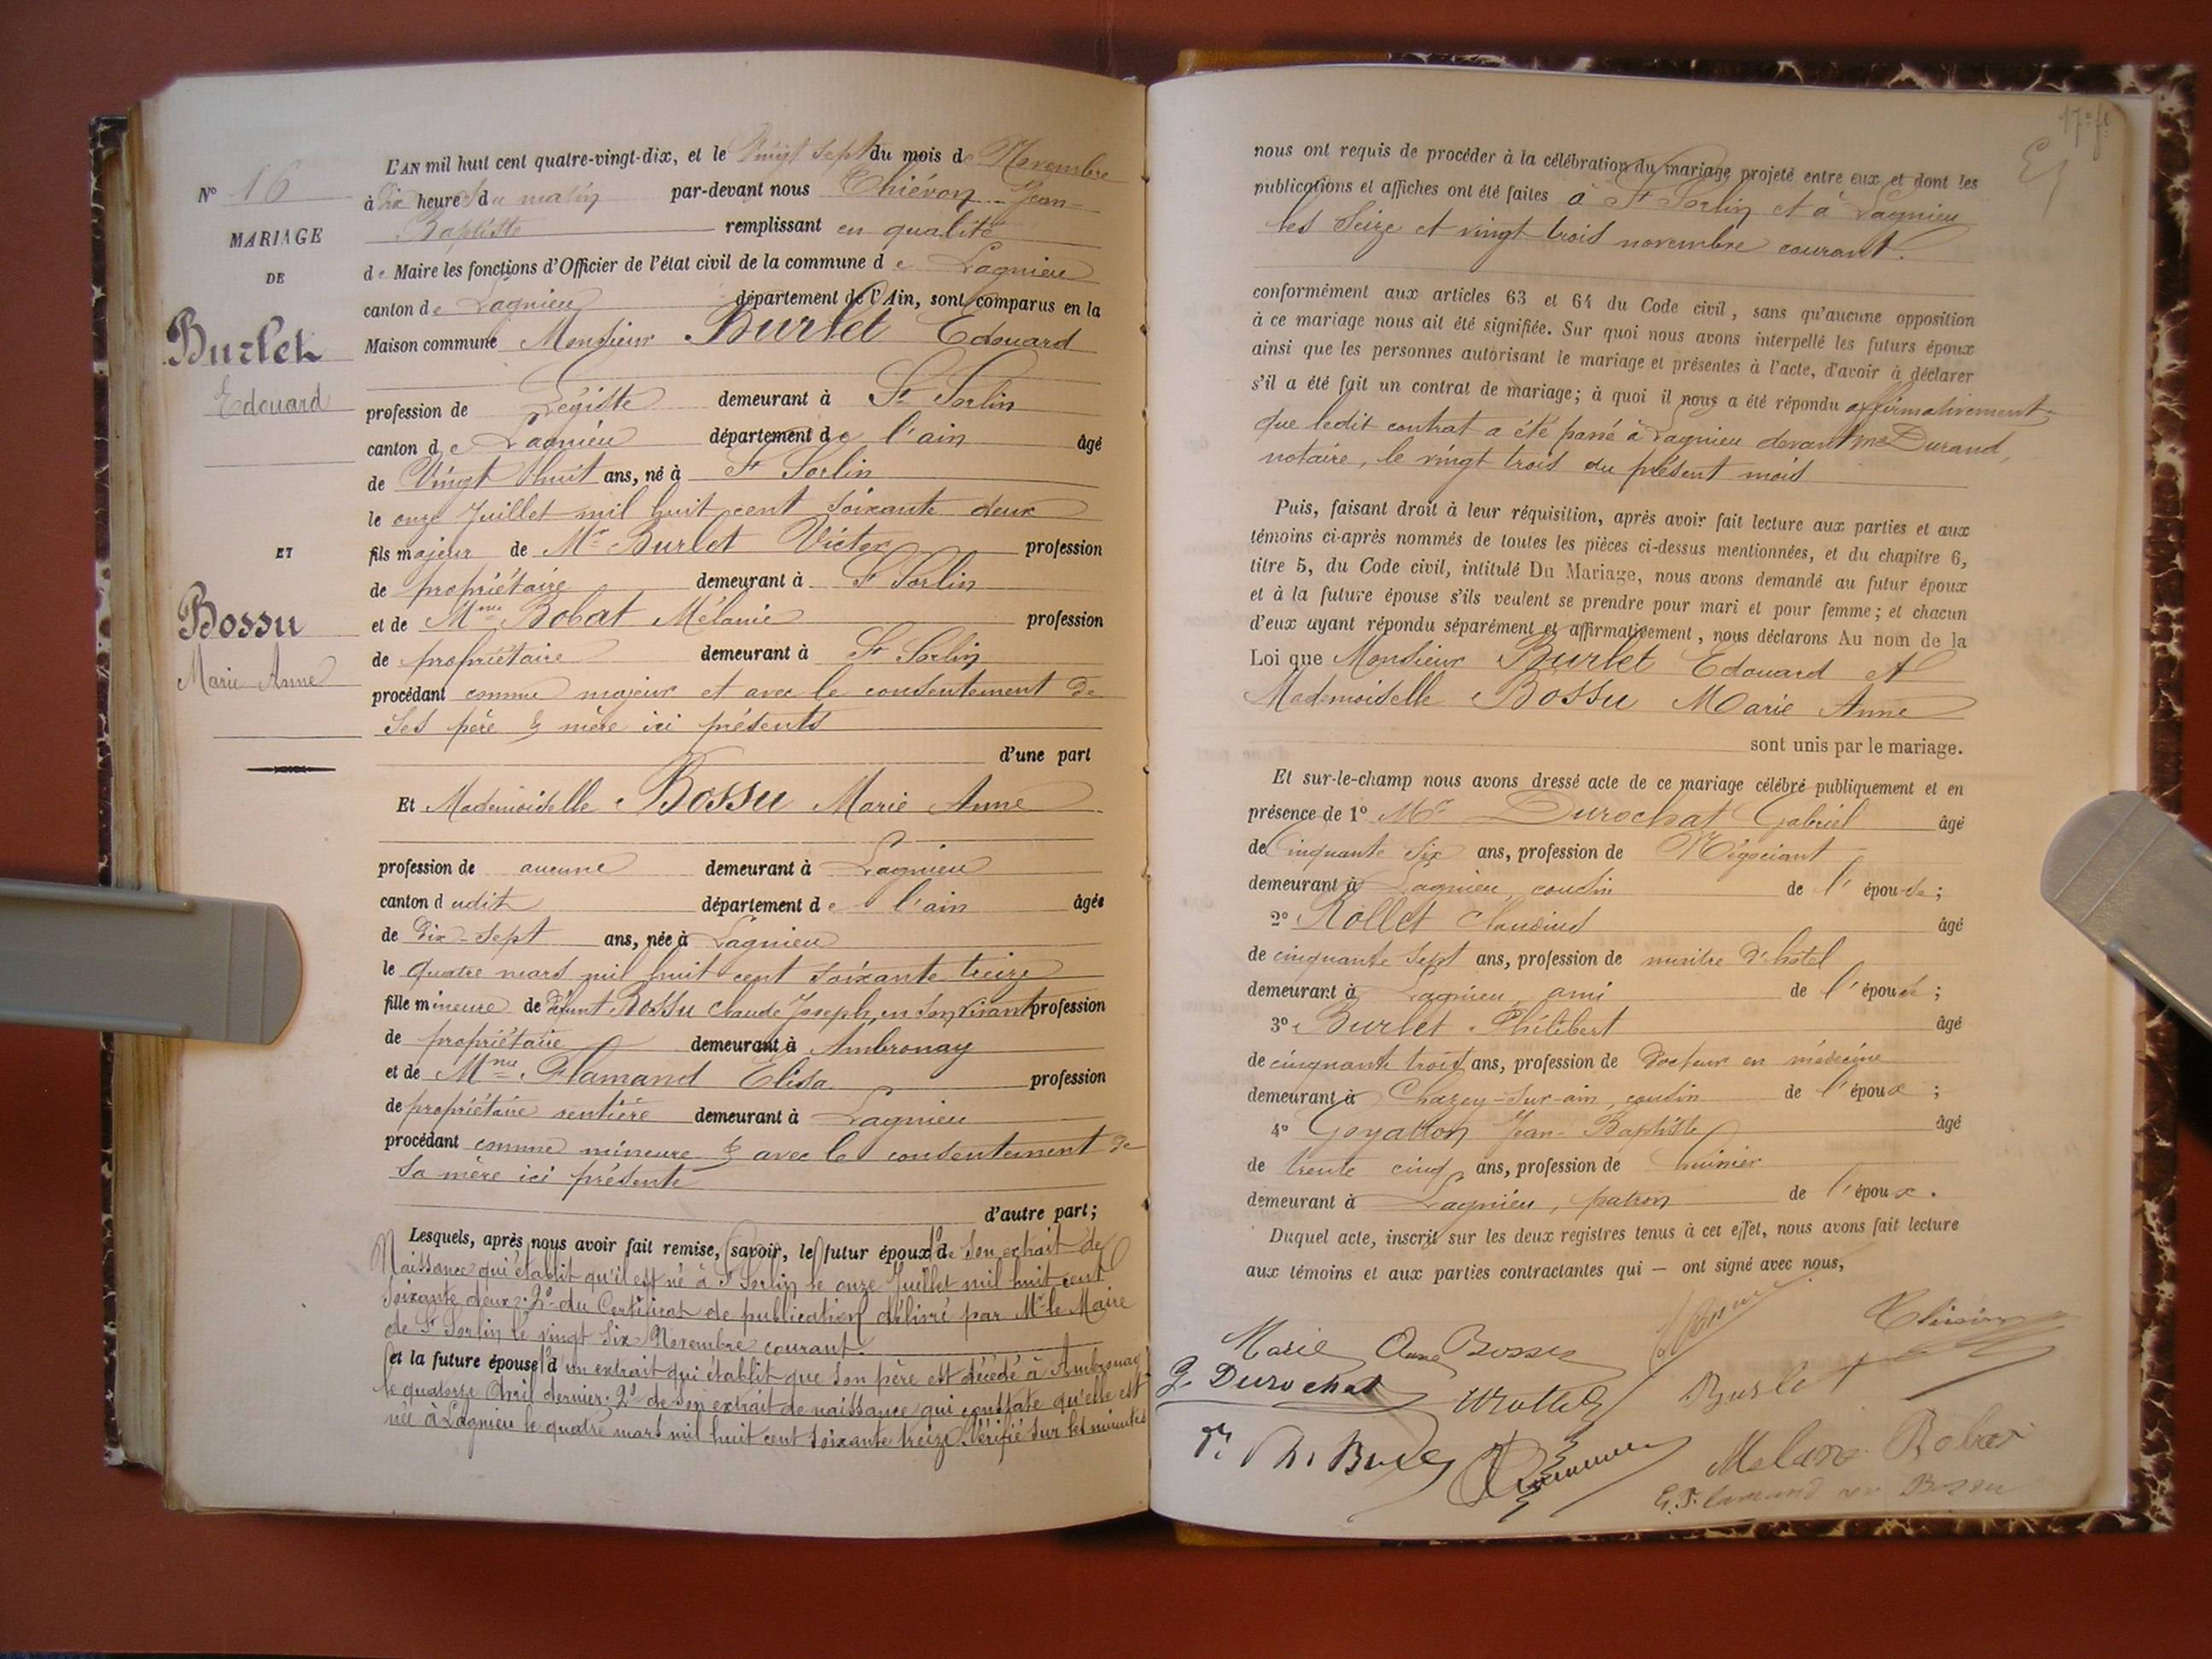 N° 16
MARIAGE
DE
Burlet
Edouard
ET
Bossu
Marie Anne
L'AN mil huit cent quatre-vingt-dix, et le Vingt Sept du mois de Novembre
à Dix heures du matin par-devant nous Thiévon Jean-
Baptiste remplissant en qualité
de Maire les fonctions d'Officier de l'état civil de la commune de Lagnieu
canton de Lagnieu département de l'Ain, sont comparus en la
Maison commune Monsieur Burlet Edouard
profession de Légiste demeurant à St Sorlin
canton de Lagnieu département de l'ain âgé
de Vingt huit ans, né à St Sorlin
le onze Juillet mil huit cent soixante deux
fils majeur de Mr Burlet Victor profession
de propriétaire demeurant à St Sorlin
et de Mme Bobat Mélanie profession
de propriétaire demeurant à St Sorlin
procédant comme majeur et avec le consentement de
Ses père & mère ici présents
d'une part
Et Mademoiselle Bossu Marie Anne
profession de aucune demeurant à Lagnieu
canton dudit département de l'ain âgée
de Dix-Sept ans, née à Lagnieu
le quatre mars mil huit cent soixante treize
fille mineure de défunt Bossu Claude Joseph, en son vivant profession
de propriétaire demeurant à Ambronay
et de Mme Flamand Elisa profession
de propriétaire rentière demeurant à Lagnieu
procédant comme mineure & avec le consentement de
Sa mère ici présente
d'autre part;
Lesquels, après nous avoir fait remise, savoir, le futur époux 1° de Son extrait de
Naissance qui établit qu'il est né à St Sorlin le onze Juillet mil huit cent
soixante deux; 2° du Certificat de publication délivré par Mr le Maire
de St Sorlin le vingt Six Novembre courant.
et la future épouse 1° d'un extrait qui établit que Son père est décédé à Ambronay
le quatorze Avril dernier; 2° de son extrait de naissance qui constate qu'elle est
née à Lagnieu le quatre mars mil huit cent soixante treize. Vérifié sur les minutes
17e ft
nous ont requis de procéder à la célébration du mariage projeté entre eux et dont les
publications et affiches ont été faites à St Sorlin et à Lagnieu
les Seize et vingt trois novembre courant.
conformément aux articles 63 et 64 du Code civil, sans qu'aucune opposition
à ce mariage nous ait été signifiée. Sur quoi nous avons interpellé les futurs époux
ainsi que les personnes autorisant le mariage et présentes à l'acte, d'avoir à déclarer
s'il a été fait un contrat de mariage; à quoi il nous a été répondu affirmativement
que ledit contrat a été passé à Lagnieu devant Me Durand,
notaire, le vingt trois du présent mois
Puis, faisant droit à leur réquisition, après avoir fait lecture aux parties et aux
témoins ci-après nommés de toutes les pièces ci-dessus mentionnées, et du chapitre 6,
titre 5, du Code civil, intitulé Du Mariage, nous avons demandé au futur époux
et à la future épouse s'ils veulent se prendre pour mari et pour femme; et chacun
d'eux ayant répondu séparément et affirmativement, nous déclarons Au nom de la
Loi que Monsieur Burlet Edouard et
Mademoiselle Bossu Marie Anne
sont unis par le mariage.
Et sur-le-champ nous avons dressé acte de ce mariage célébré publiquement et en
présence de 1° Mr Durochat Gabriel âgé
de Cinquante Six ans, profession de Négociant
demeurant à Lagnieu, cousin de l'épouse;
2° Rollet Claudius âgé
de cinquante Sept ans, profession de maître d'hôtel
demeurant à Lagnieu, ami de l'épouse;
3° Burlet Philibert âgé
de cinquante trois ans, profession de Docteur en médecine
demeurant à Chazey-sur-ain, cousin de l'époux;
4° Goyatton Jean-Baptiste âgé
de trente cinq ans, profession de huissier
demeurant à Lagnieu, patron de l'époux.
Duquel acte, inscrit sur les deux registres tenus à cet effet, nous avons fait lecture
aux témoins et aux parties contractantes qui — ont signé avec nous,
Marie Anne Bossu
G. Durochat
Burlet
Melanie Bobat
E. Flamand Bossu